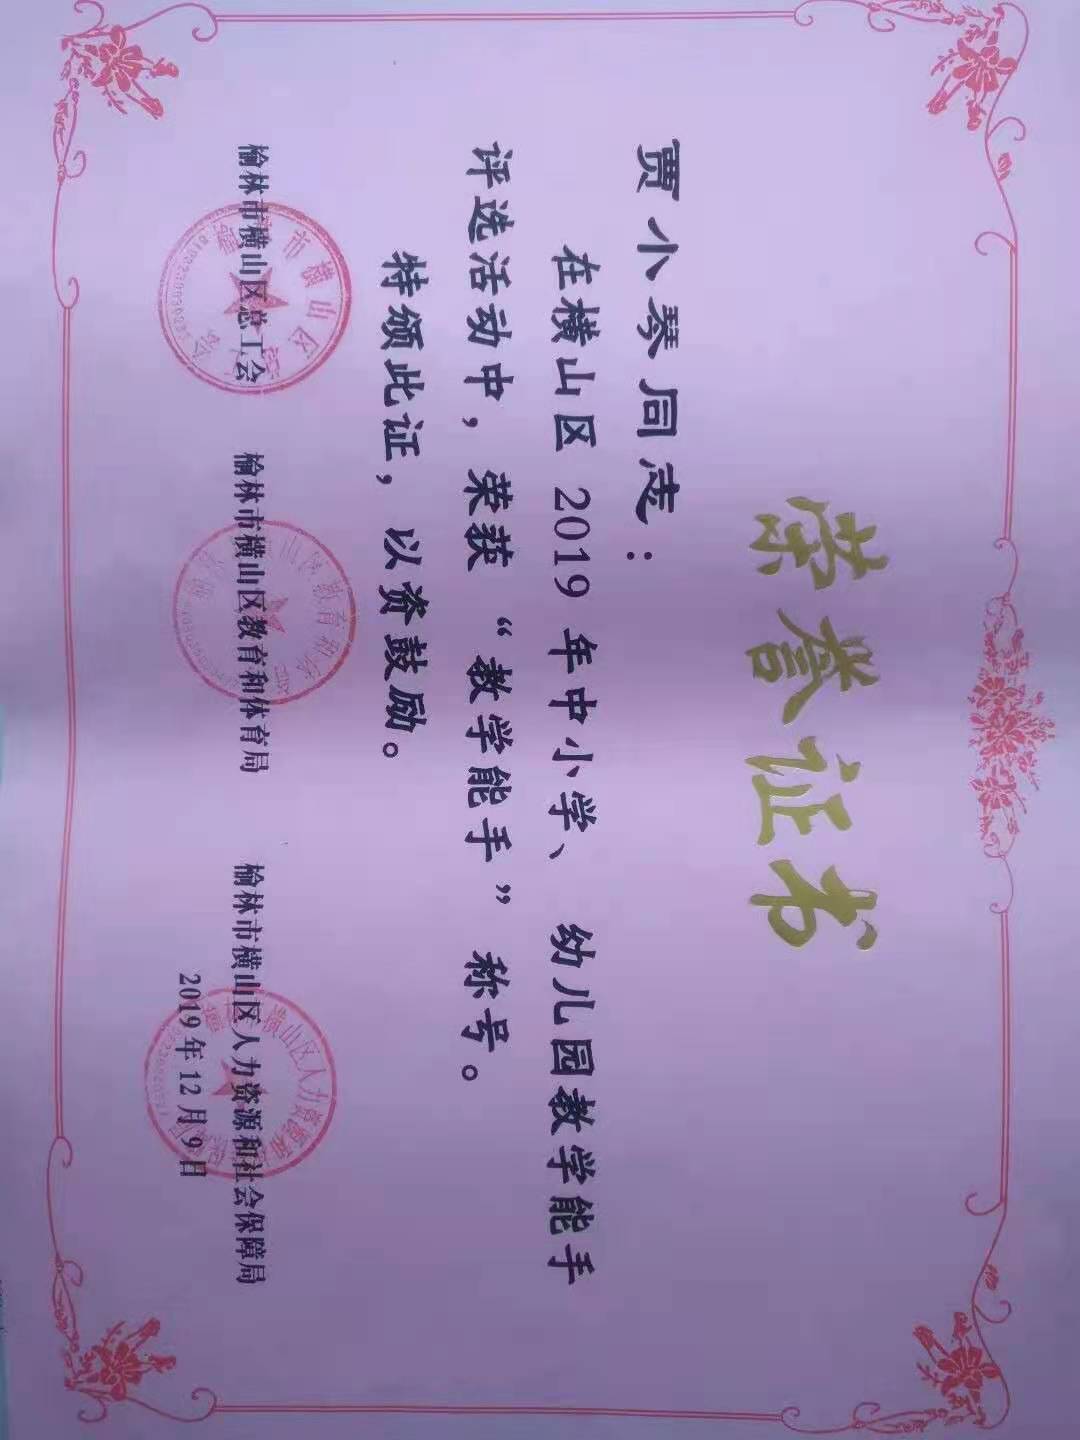 荣誉证书
贾小琴同志：
在横山区 2019 年中小学、幼儿园教学能手
评选活动中，荣获“教学能手”称号。
特颁此证，以资鼓励。
榆林市横山区总工会 榆林市横山区教育和体育局 榆林市横山区人力资源和社会保障局
2019年12月9日